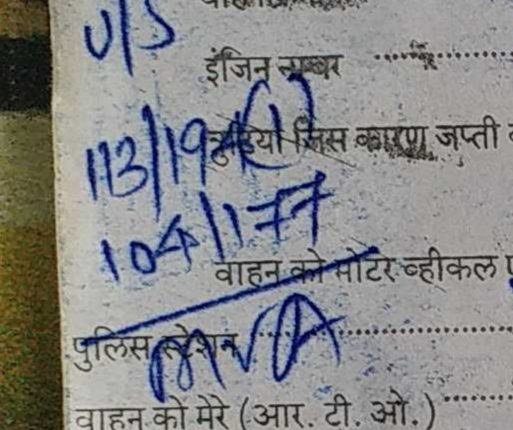 U/S
इंजिन नम्बर
113/194(1)
जिस कारण जप्ती
104/177
वाहन को मोटर व्हीकल
पुलिस स्टेशन
MVA
वाहन को मेरे (आर. टी. ओ.)